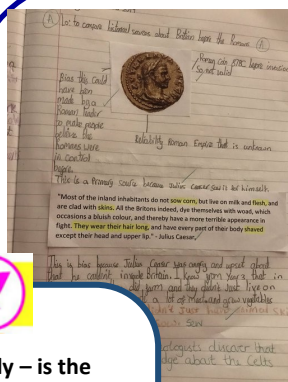 (A) Lo: to compare historical sources about Britain before the Romans (A)
Roman coin
before invasion
So not valid
Bias this could
have been
made by a
Roman leader
to make people
believe the
Romans were
in control
before.
Reliability Roman Empire that is unknown
This is a Primary source because Julius Caesar saw it for himself.
"Most of the inland inhabitants do not sow corn, but live on milk and flesh, and
are clad with skins. All the Britons indeed, dye themselves with woad, which
occasions a bluish colour, and thereby have a more terrible appearance in
fight. They wear their hair long, and have every part of their body shaved
except their head and upper lip." - Julius Caesar,
This is bias because Julius Caesar was angry and upset about
that he couldn't invade Britain. I know from Year 3, that
did farm and they didn't just live on
a lot of meat and grew vegetables
didn't just have animal
sow
discover that
about the Celts
ly – is the